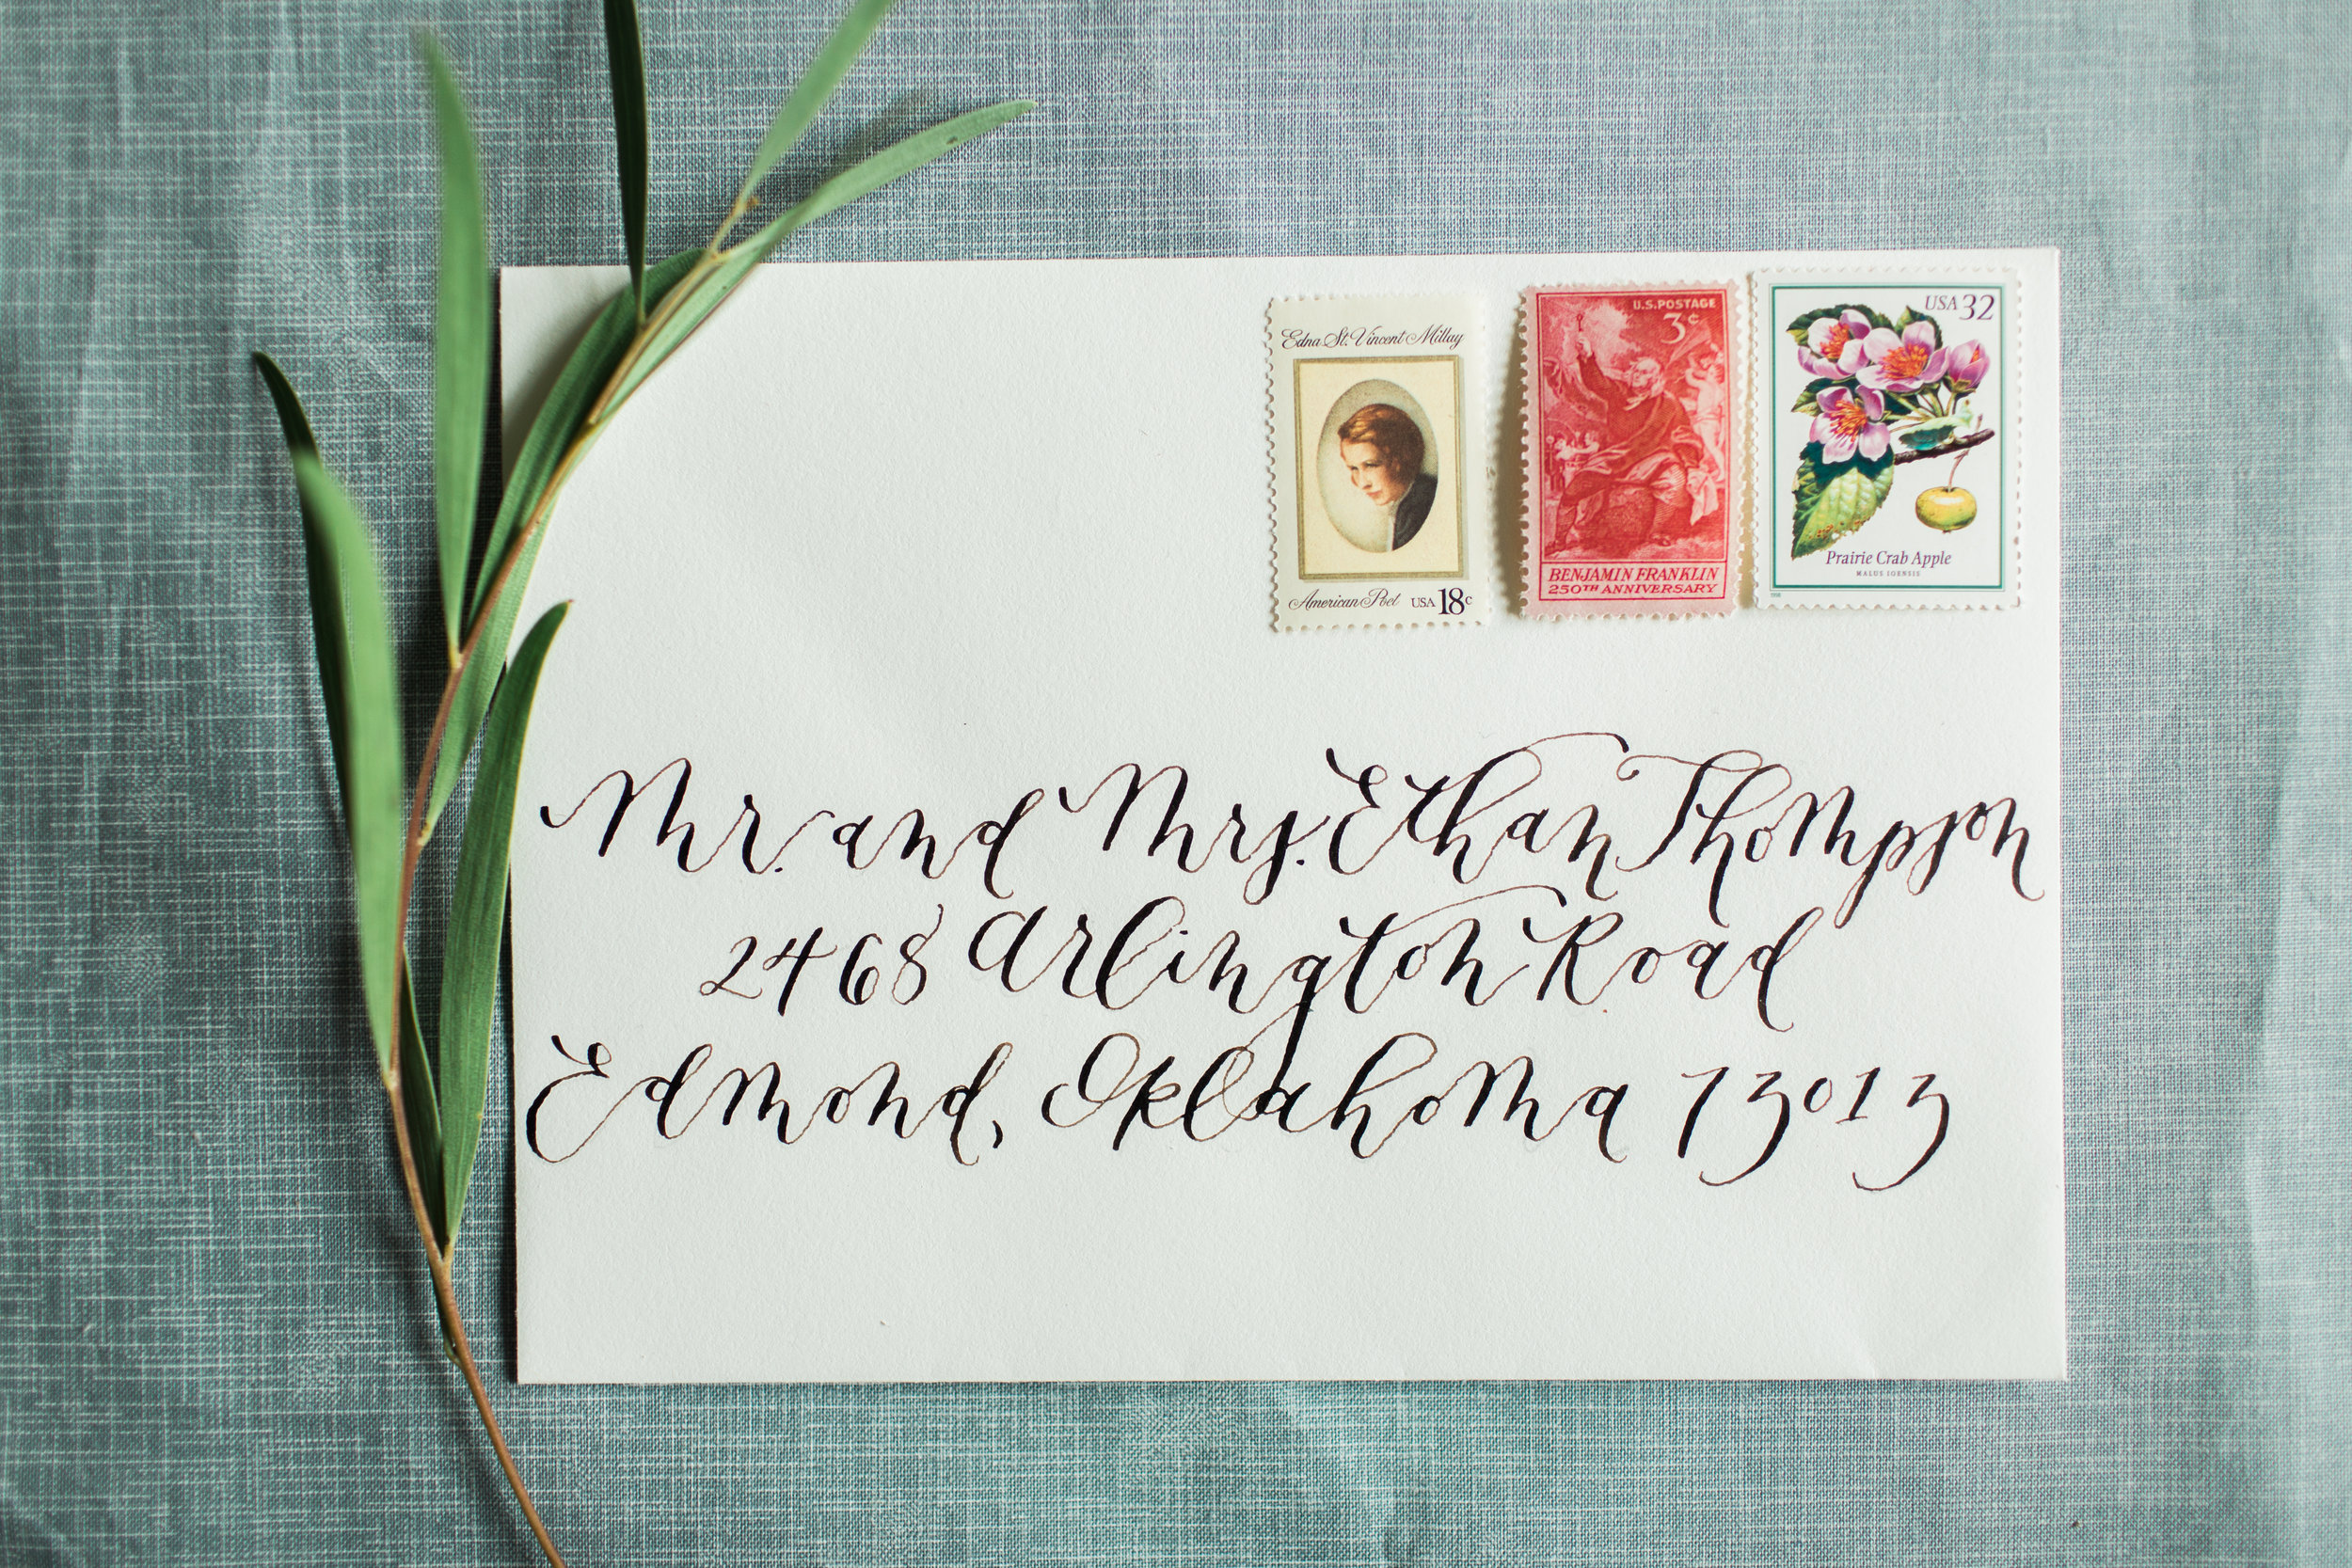 Edna St. Vincent Millay
American Poet USA 18c
U.S. POSTAGE
3¢
BENJAMIN FRANKLIN
250TH ANNIVERSARY
USA 32
Prairie Crab Apple
MALUS IOENSIS
Mr. and Mrs. Ethan Thompson
2468 Arlington Road
Edmond, Oklahoma 73013